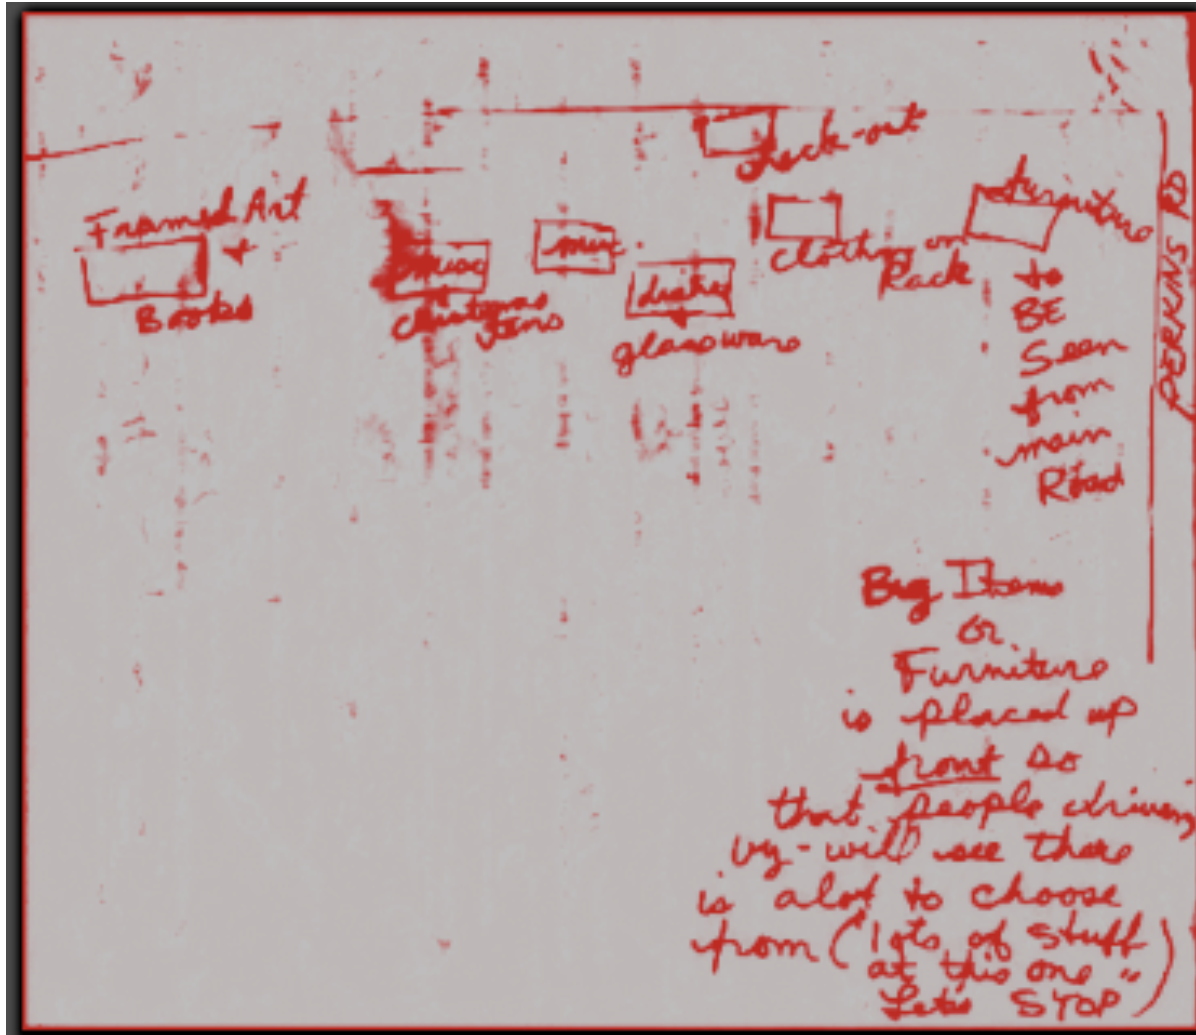 check-out
Framed Art
+
Books
misc
+
Christmas
items
misc
dishes
+
glassware
clothing on
Rack
furniture
to
BE
Seen
from
main
Road
PERKINS RD
Big Items
or
Furniture
is placed up
front so
that people driving
by-will see there
is alot to choose
from ("lots of stuff
at this one"
Let's STOP)